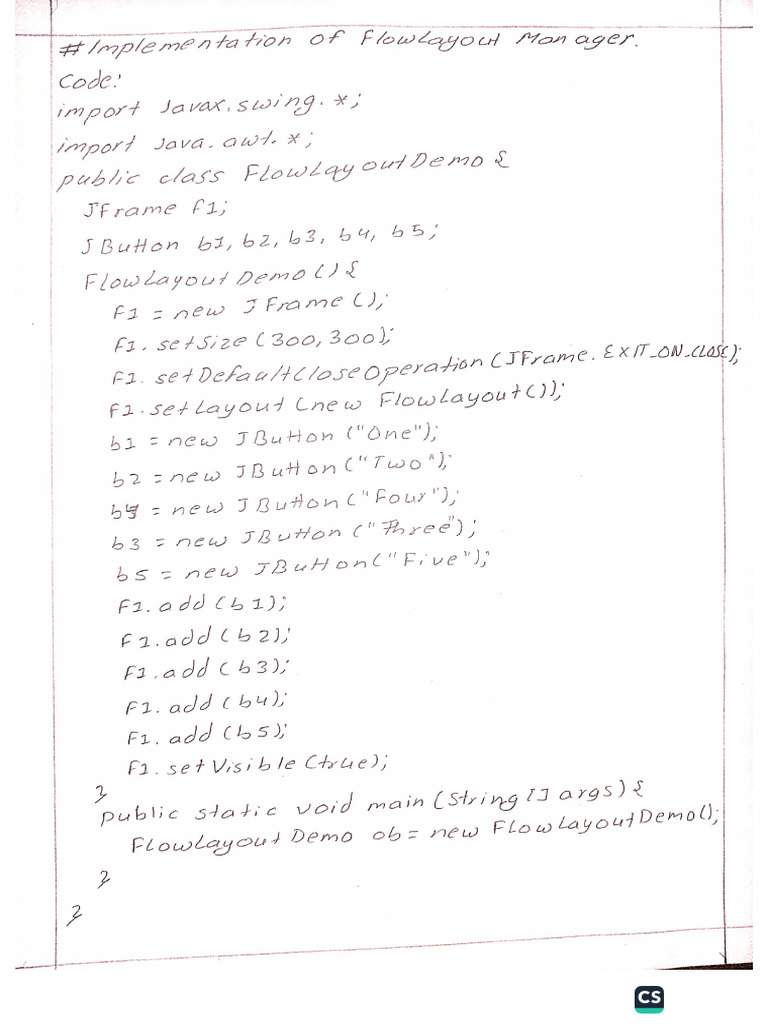 # Implementation of FlowLayout Manager.
Code:
import Javax.swing.*;
import Java.awt.*;
public class FlowLayoutDemo {
JFrame f1;
JButton b1, b2, b3, b4, b5;
FlowLayoutDemo() {
f1 = new JFrame();
f1.setSize(300,300);
f1.setDefaultCloseOperation(JFrame.EXIT_ON_CLOSE);
f1.setLayout(new FlowLayout());
b1 = new JButton("One");
b2 = new JButton("Two");
b4 = new JButton("Four");
b3 = new JButton("Three");
b5 = new JButton("Five");
f1.add(b1);
f1.add(b2);
f1.add(b3);
f1.add(b4);
f1.add(b5);
f1.setVisible(true);
}
public static void main(String [] args) {
FlowLayoutDemo ob = new FlowLayoutDemo();
}
}
CS